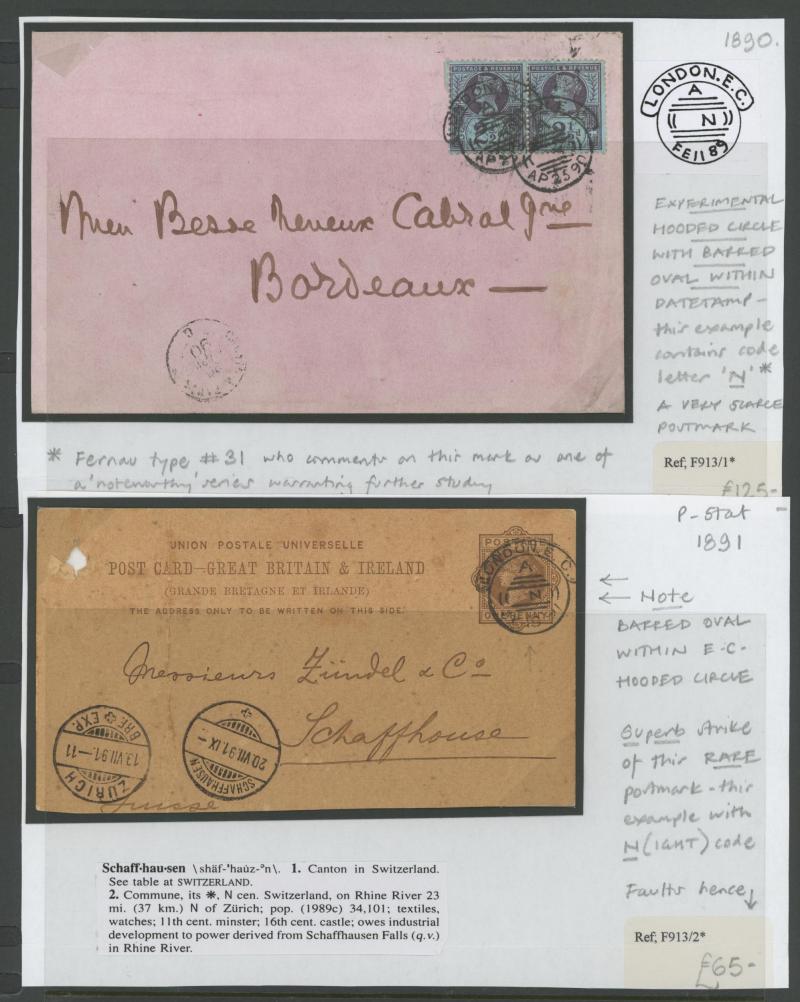 1890.
LONDON.E.C.
A
N
FE 11 89
POSTAGE & REVENUE
POSTAGE & REVENUE
AP 25 90
Besse Neveux Cabral Jne
Bordeaux —
EXPERIMENTAL
HOODED CIRCLE
WITH BARRED
OVAL WITHIN
DATETAMP -
this example
contains code
letter 'N' *
A VERY SCARCE
POSTMARK
Ref; F913/1*
£125-
* Fernau type #31 who comments on this mark as one of
a 'noteworthy' series warranting further study
P-Stat
1891
UNION POSTALE UNIVERSELLE
POST CARD—GREAT BRITAIN & IRELAND
(GRANDE BRETAGNE ET IRLANDE)
THE ADDRESS ONLY TO BE WRITTEN ON THIS SIDE.
POSTAGE
ONE PENNY
LONDON.E.C.
A
N
Messieurs Zündel & Co
Schaffhouse
Suisse
BRF EXP.
13.VII.91.-11
ZÜRICH
20.VII.91.IX-
SCHAFFHAUSEN
← Note
BARRED OVAL
WITHIN E-C-
HOODED CIRCLE
Superb strike
of this RARE
postmark - this
example with
N(IGHT) code
Faults hence
Ref; F913/2*
£65-
Schaff·hau·sen \shäf-ˈhau̇z-ᵊn\. 1. Canton in Switzerland.
See table at SWITZERLAND.
2. Commune, its *, N cen. Switzerland, on Rhine River 23
mi. (37 km.) N of Zürich; pop. (1989c) 34,101; textiles,
watches; 11th cent. minster; 16th cent. castle; owes industrial
development to power derived from Schaffhausen Falls (q.v.)
in Rhine River.